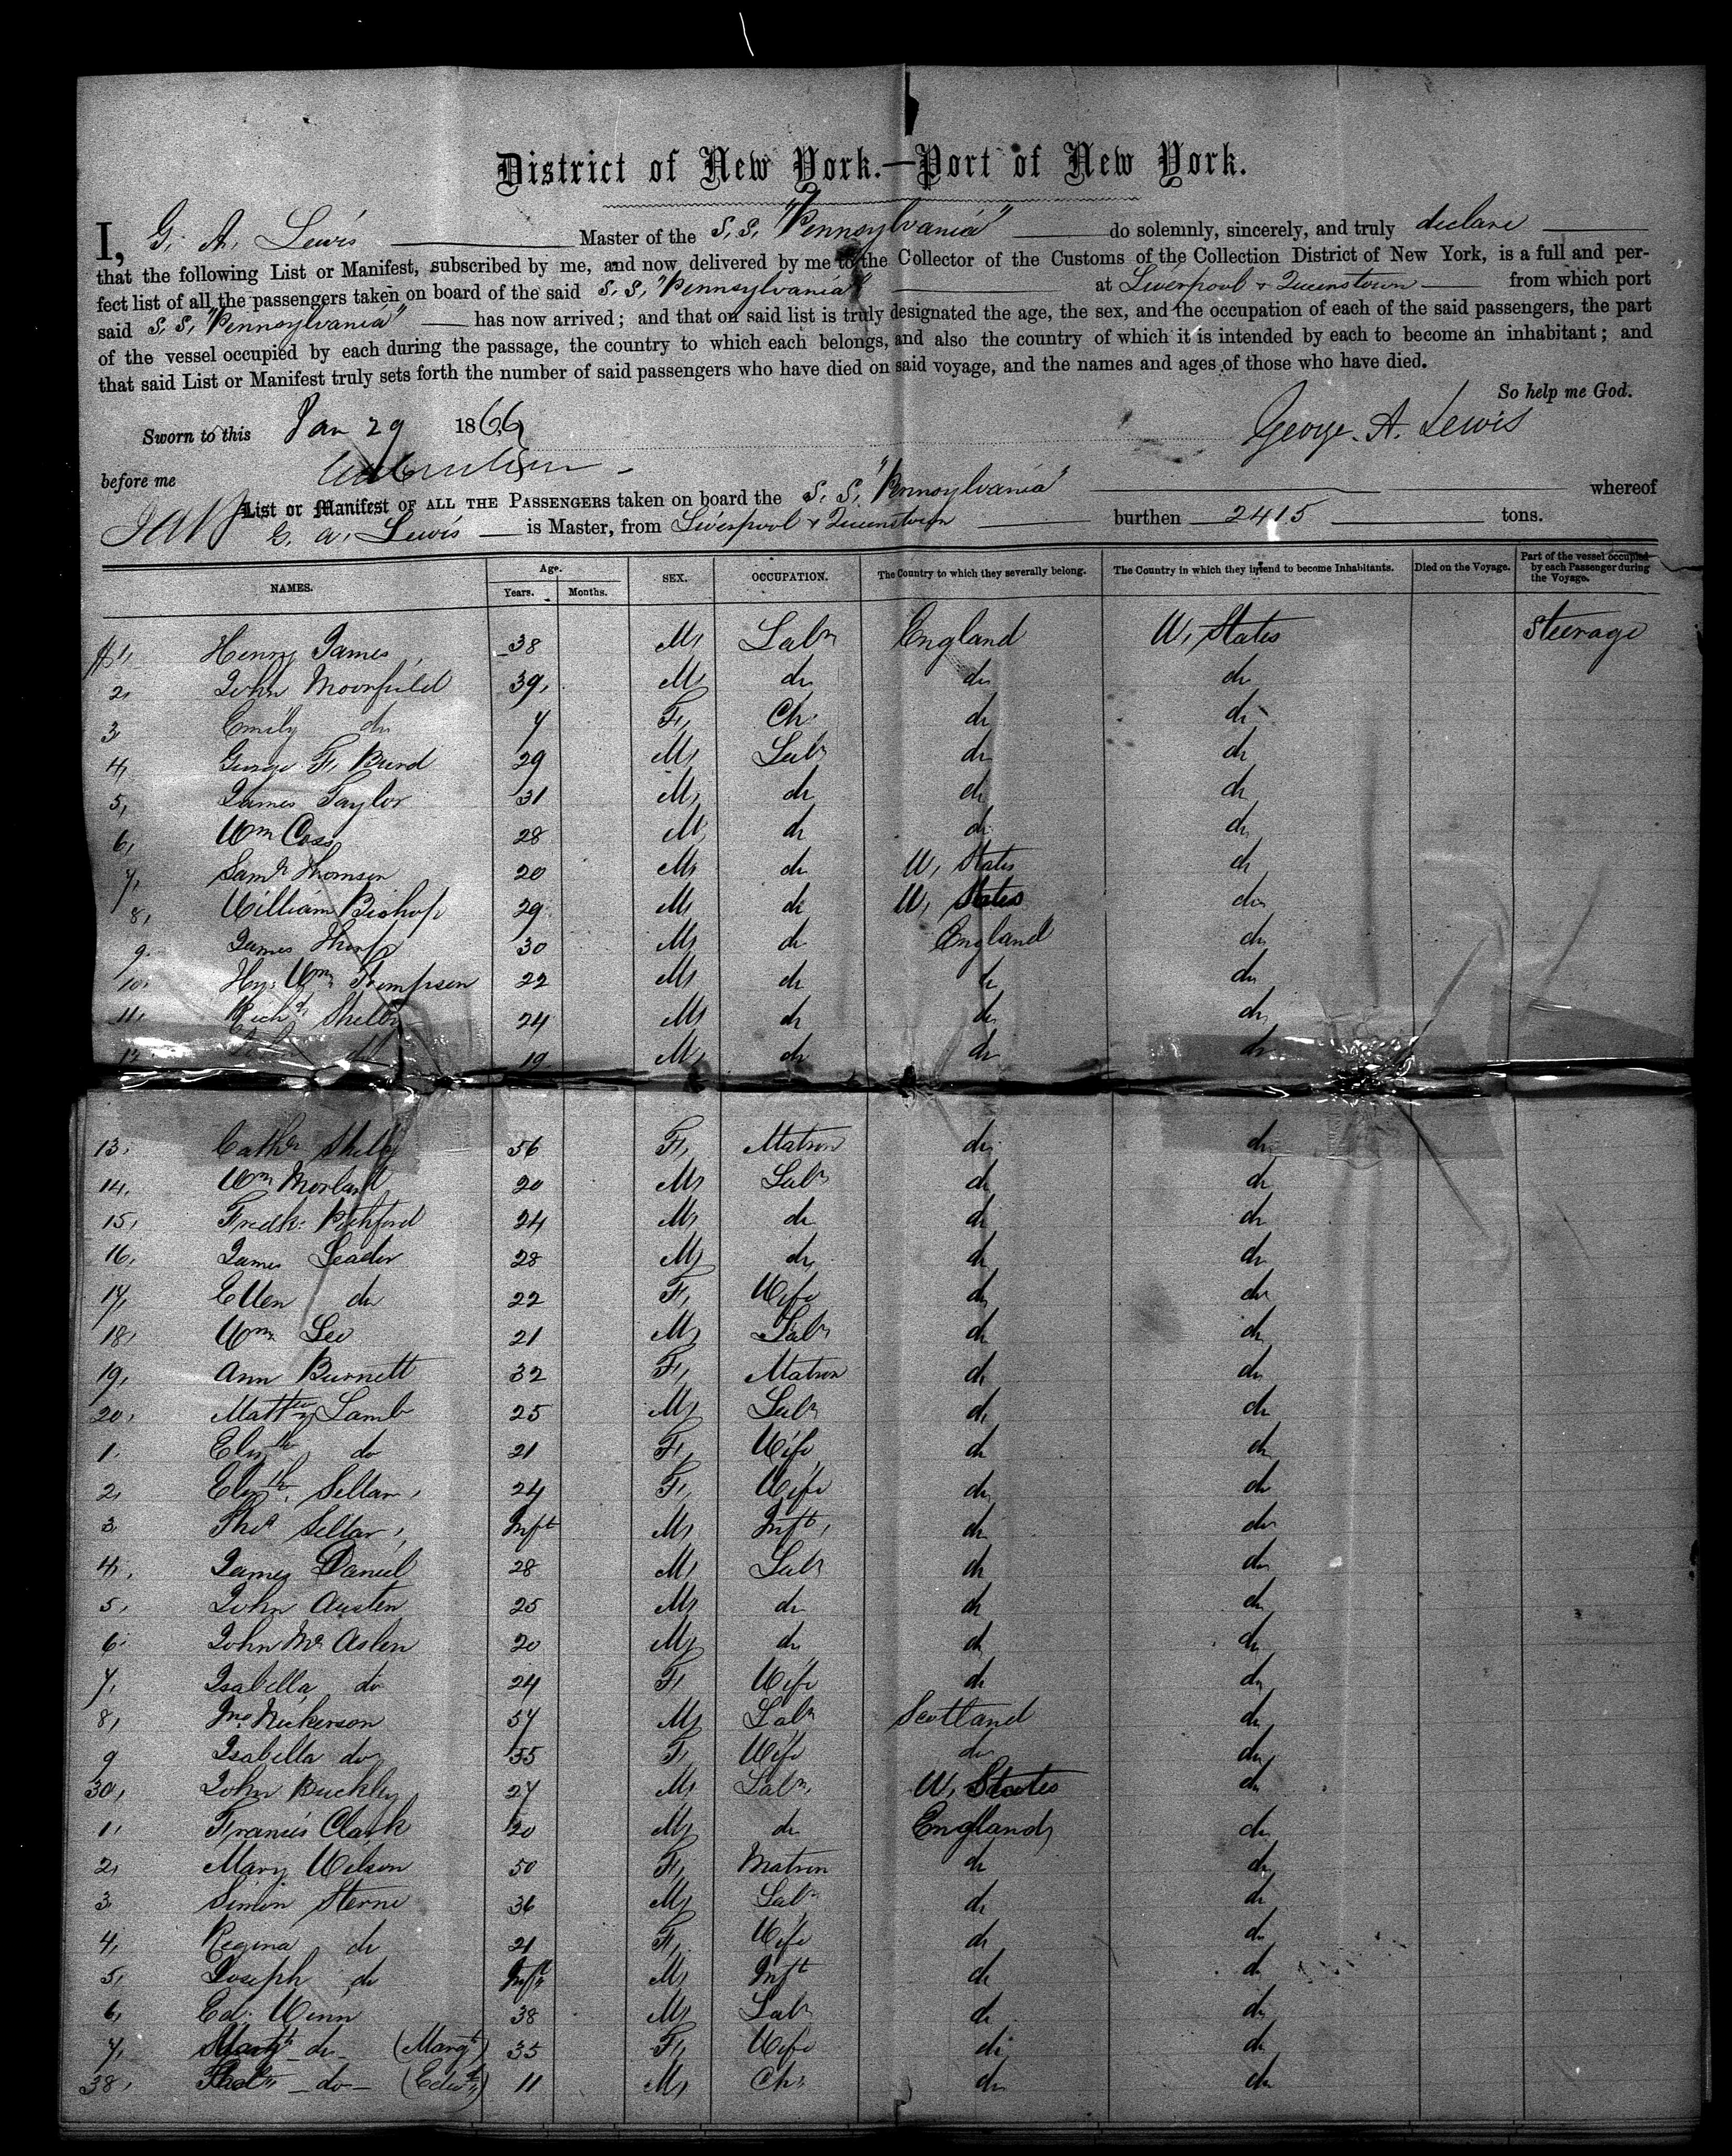 District of New York.—Port of New York.
I, G. A. Lewis Master of the S. S. "Pennsylvania" do solemnly, sincerely, and truly declare
that the following List or Manifest, subscribed by me, and now delivered by me to the Collector of the Customs of the Collection District of New York, is a full and per-
fect list of all the passengers taken on board of the said S. S. "Pennsylvania" at Liverpool & Queenstown from which port
said S. S. "Pennsylvania" has now arrived; and that on said list is truly designated the age, the sex, and the occupation of each of the said passengers, the part
of the vessel occupied by each during the passage, the country to which each belongs, and also the country of which it is intended by each to become an inhabitant; and
that said List or Manifest truly sets forth the number of said passengers who have died on said voyage, and the names and ages of those who have died.
So help me God.
Sworn to this Jan 29 1866 George. A. Lewis
before me
List or Manifest OF ALL THE PASSENGERS taken on board the S. S. "Pennsylvania" whereof
G. A. Lewis is Master, from Liverpool & Queenstown burthen 2415 tons.
NAMES. Age. Years. Months. SEX. OCCUPATION. The Country to which they severally belong. The Country in which they intend to become Inhabitants. Died on the Voyage. Part of the vessel occupied by each Passenger during the Voyage.
1, Henry James 38 M, Labr England U, States Steerage
2, John Moorfield 39, M, do do do
3 Emily do 7 F, Ch. do do
4, George F, 29 M, Labr do do
5, James Taylor 31 M, do do do
6, Wm Cass 28 M, do do do
7, Saml Thomson 20 M, do U, States do
8, William Bishop 29 M, do U, States do
9. James 30 M, do England do
10, Hy. Wm Thompson 22 M, do do do
11, Richd Shelby 24 M, do do do
12 do 19 M, do do do
13, Cathn Shelby 56 F, Matron do do
14, Wm Morland 20 M, Labr do do
15, Fredk. Pickford 24 M, do do do
16, James Leader 28 M, do do do
17, Ellen do 22 F, Wife do do
18, Wm Lee 21 M, Labr do do
19, Ann Burnett 32 F, Matron do do
20, Matthew Lamb 25 M, Labr do do
1. Elizth do 21 F, Wife do do
2, Elizth. Sellar, 24 F, Wife do do
3 Thos Sellar, Inft M, Inft, do do
4, James Daniel 28 M, Labr do do
5, John Austen 25 M, do do do
6. John Mc Aslen 20 M, do do do
7, Isabella do 24 F, Wife do do
8, Jno Nickerson 57 M, Labr Scotland do
9 Isabella do 55 F, Wife do do
30, John Buckley 27 M, Labr, U, States do
1, Francis Clark 20 M, do England do
2, Mary Wilson 50 F, Matron do do
3 Simon Sterne 36 M, Labr do do
4, Regina do 21 F, Wife do do
5, Joseph do Inft M, Inft do do
6, Ed. Wenn 38 M, Labr do do
7, do (Margt) 35 F, Wife do do
38, do (Edwd) 11 M, Ch. do do